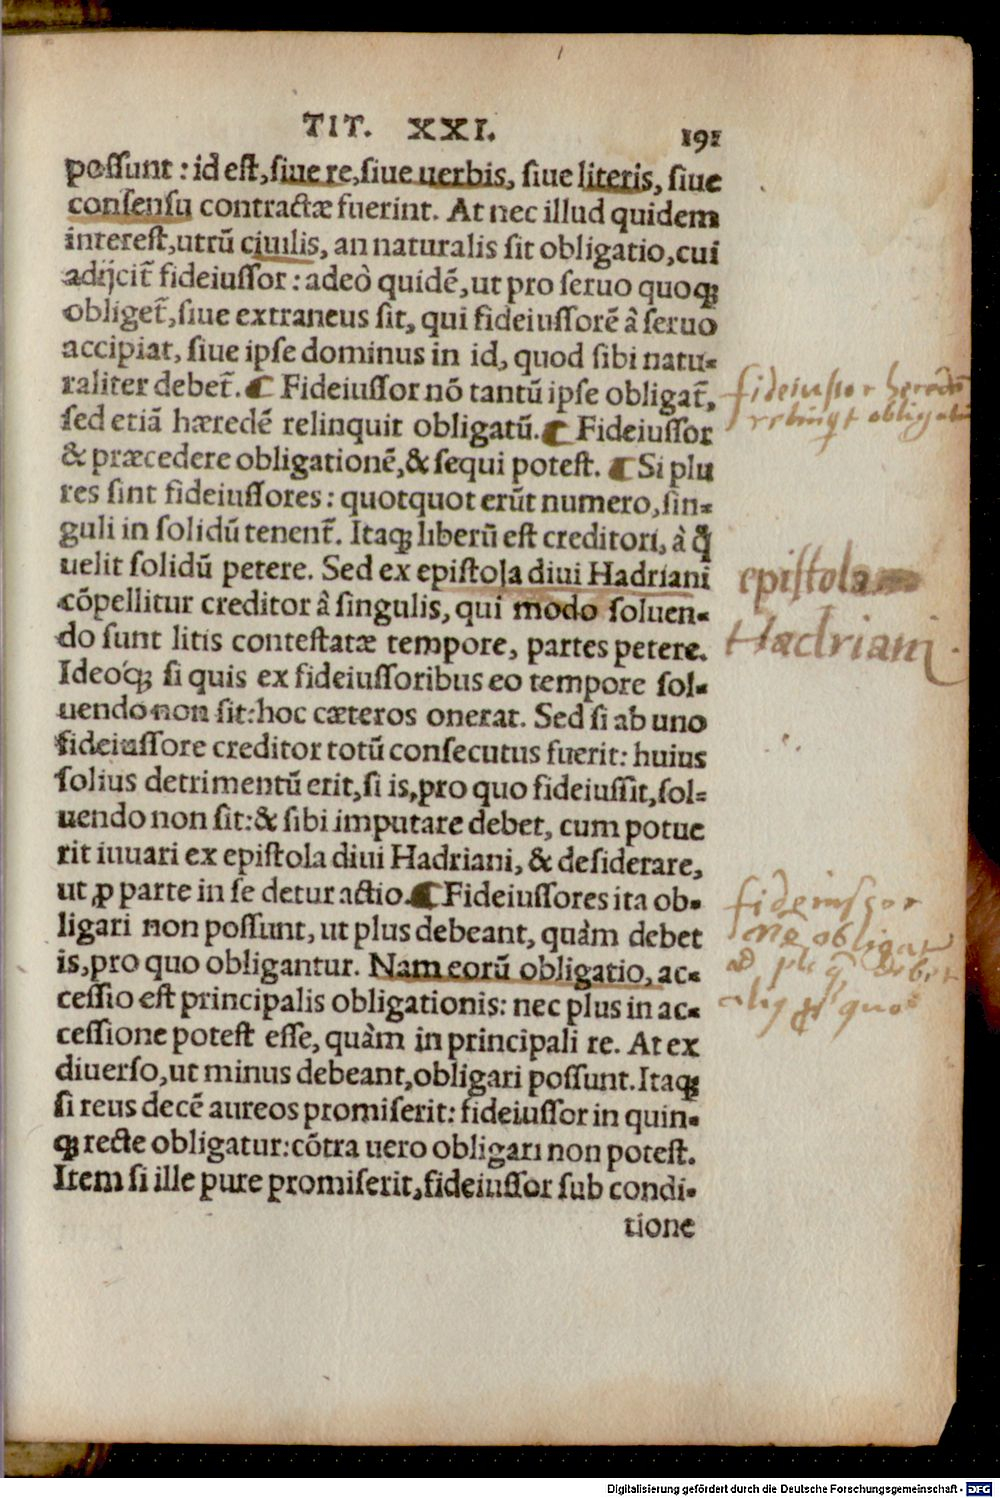 TIT. XXI. 191
poſſunt : id eſt, ſiue re, ſiue uerbis, ſiue literis, ſiue
conſenſu contractæ fuerint. At nec illud quidem
intereſt, utrũ ciuilis, an naturalis ſit obligatio, cui
adijcit᷑ fideiuſſor : adeò quidẽ, ut pro ſeruo quoq;
obliget᷑, ſiue extraneus ſit, qui fideiuſſorẽ à ſeruo
accipiat, ſiue ipſe dominus in id, quod ſibi natu-
raliter debet᷑. ¶ Fideiuſſor nõ tantũ ipſe obligat᷑,
ſed etiã hæredẽ relinquit obligatũ. ¶ Fideiuſſor
& præcedere obligationẽ, & ſequi poteſt. ¶ Si plu
res ſint fideiuſſores : quotquot erũt numero, ſin-
guli in ſolidũ tenent᷑. Itaq; liberũ eſt creditori, à q̃
uelit ſolidũ petere. Sed ex epiſtola diui Hadriani
cõpellitur creditor à ſingulis, qui modo ſoluen-
do ſunt litis conteſtatæ tempore, partes petere.
Ideóq; ſi quis ex fideiuſſoribus eo tempore ſol-
uendo non ſit: hoc cæteros onerat. Sed ſi ab uno
fideiuſſore creditor totũ conſecutus fuerit: huius
ſolius detrimentũ erit, ſi is, pro quo fideiuſſit, ſol-
uendo non ſit: & ſibi imputare debet, cum potue
rit iuuari ex epiſtola diui Hadriani, & deſiderare,
ut ꝓ parte in ſe detur actio. ¶ Fideiuſſores ita ob-
ligari non poſſunt, ut plus debeant, quàm debet
is, pro quo obligantur. Nam eorũ obligatio, ac-
ceſſio eſt principalis obligationis: nec plus in ac-
ceſſione poteſt eſſe, quàm in principali re. At ex
diuerſo, ut minus debeant, obligari poſſunt. Itaq;
ſi reus decẽ aureos promiſerit: fideiuſſor in quin-
q; recte obligatur: cõtra uero obligari non poteſt.
Item ſi ille pure promiſerit, fideiuſſor ſub condi-
tione
fideiuſſor heredẽ
relinqt obligatũ
epiſtola
Hadriani
fideiuſſor
obligat
debet
quo
Digitalisierung gefördert durch die Deutsche Forschungsgemeinschaft - DFG